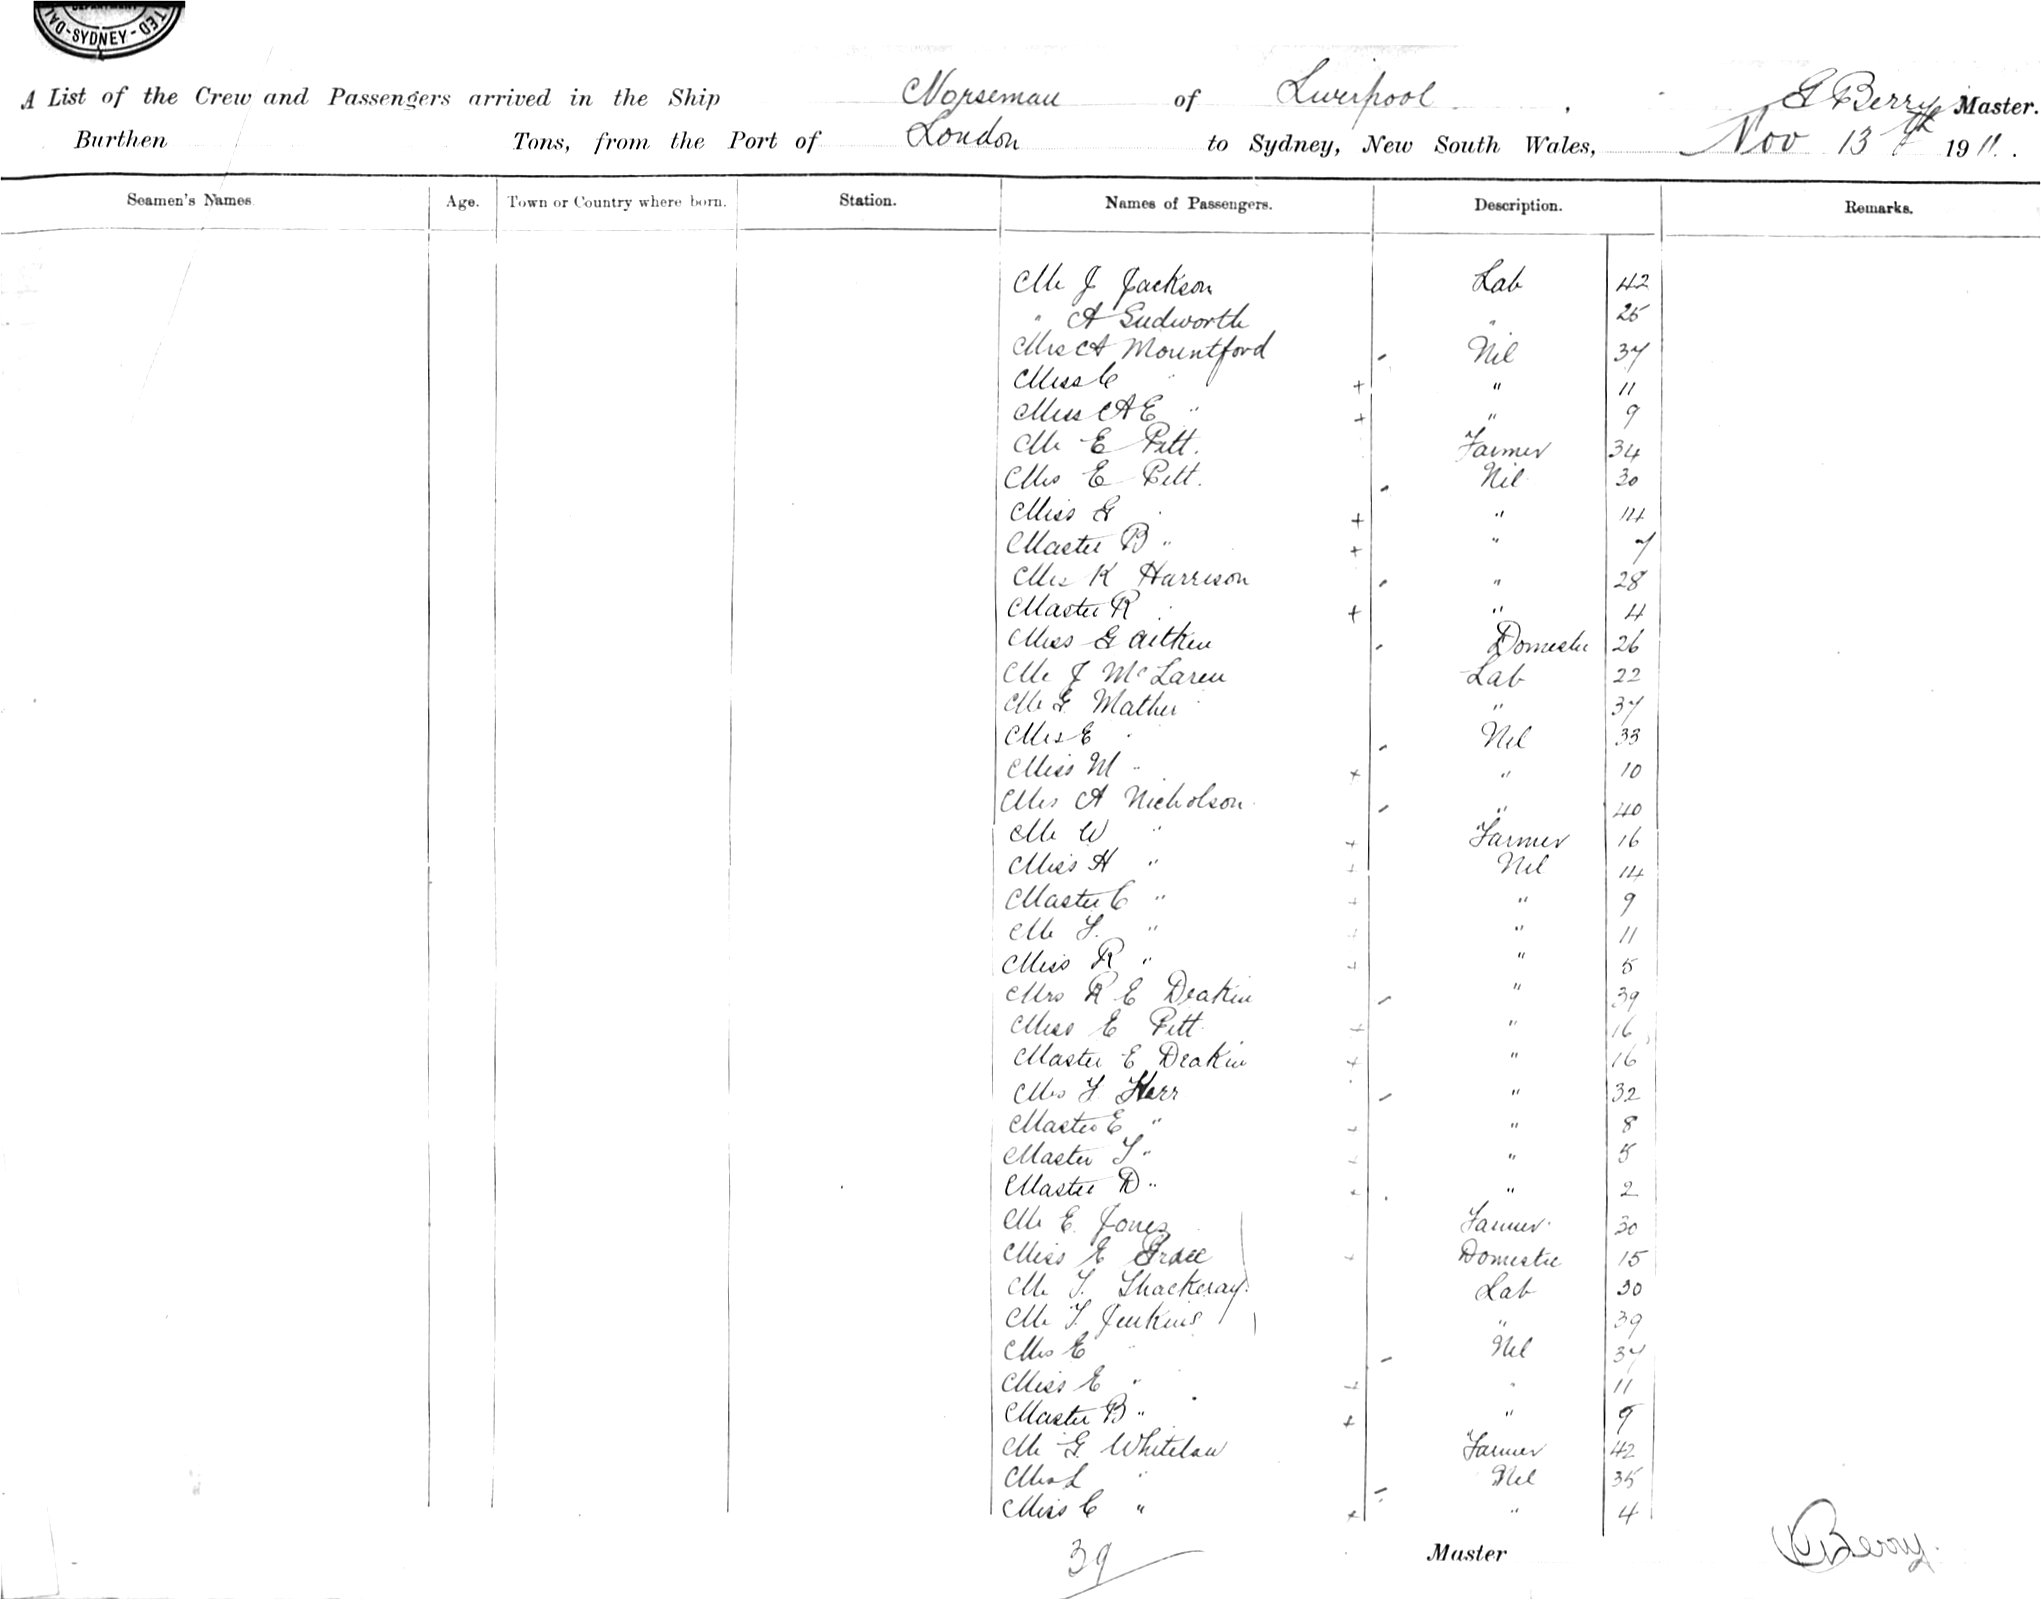 DEPARTMENT
-SYDNEY-
A List of the Crew and Passengers arrived in the Ship Norseman of Liverpool, G Berry Master.
Burthen Tons, from the Port of London to Sydney, New South Wales, Nov 13th 1911.
Seamen's Names. Age. Town or Country where born. Station. Names of Passengers. Description. Remarks.
Mr J Jackson Lab 42
" A Sudworth " 25
Mrs A Mountford Nil 37
Miss C " " 11
Miss A E " " 9
Mr E Pitt. Farmer 34
Mrs E Pitt. Nil 30
Miss G " " 14
Master B " " 7
Mrs K Harrison " 28
Master R " " 4
Miss G Aitken Domestic 26
Mr J McLaren Lab 22
Mr G Mather " 37
Mrs E " Nil 33
Miss M " " 10
Mrs A Nicholson " 40
Mr W " Farmer 16
Miss H " Nil 14
Master C " " 9
Mr F. " " 11
Miss R " " 5
Mrs R E Deakin " 39
Miss E Pitt " 16
Master E Deakin " 16
Mrs F Kerr " 32
Master E " " 8
Master T " " 5
Master D " " 2
Mr E. Jones Farmer 30
Miss E Grace Domestic 15
Mr T. Thackeray Lab 30
Mr T. Jenkins " 39
Mrs E " Nil 37
Miss E " " 11
Master B " " 9
Mr G Whitelaw Farmer 42
Mrs L " Nil 35
Miss C " " 4
39 Master G Berry.